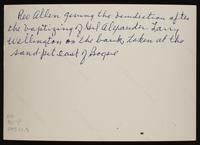 Rev Allen giving the benediction after
the baptizing of Gil Alexander. Larry
Wellington on the bank, taken at the
sand pit east of Bogue